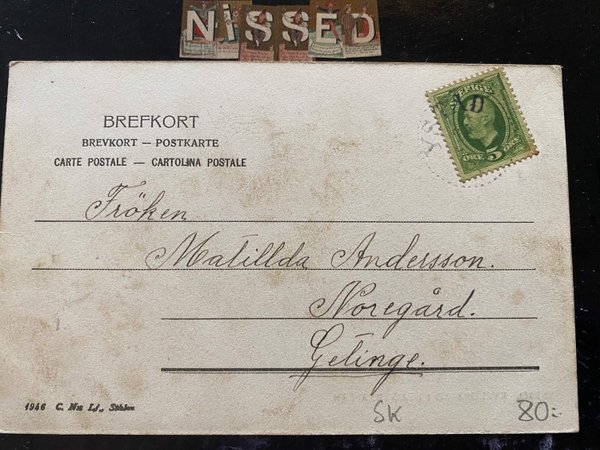 NiSSED
BREFKORT
BREVKORT — POSTKARTE
CARTE POSTALE — CARTOLINA POSTALE
SVERIGE
ÖRE 5 ÖRE
AD
Fröken
Matillda Andersson.
Noregård.
Getinge.
1946 C. Ns Lj., Sthlm
SK 80:-